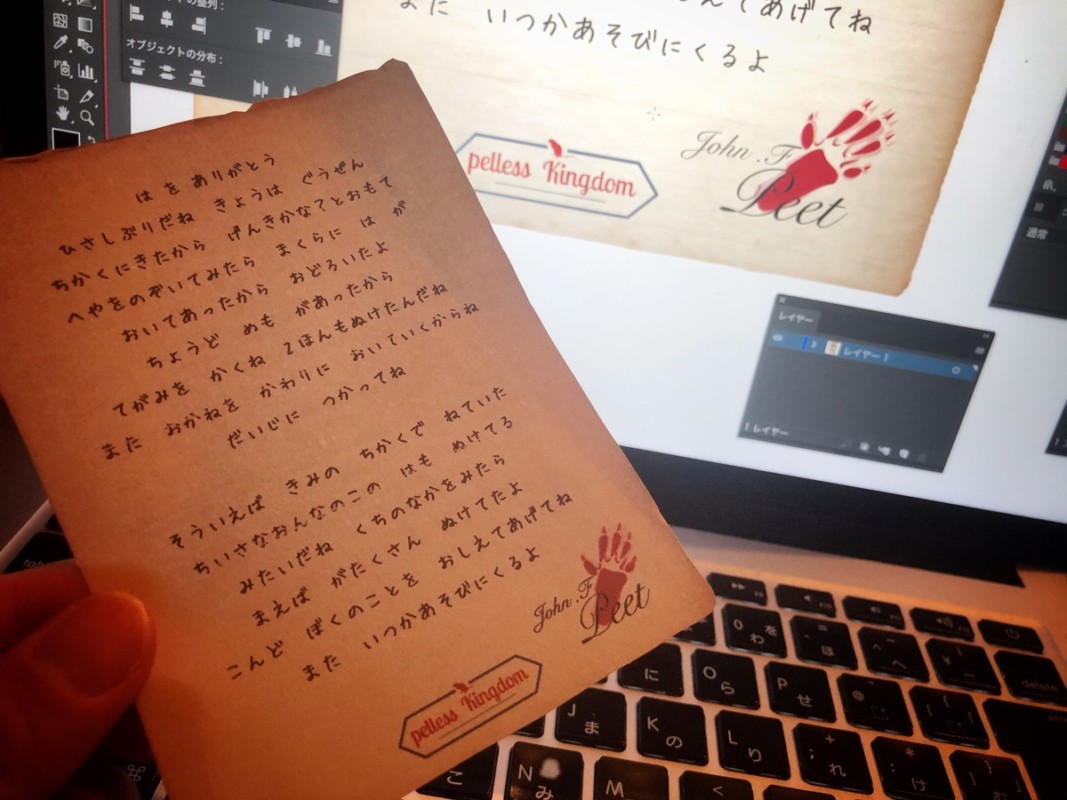 は を ありがとう
ひさしぶりだね きょうは ぐうぜん
ちかくにきたから げんきかなてとおもて
へやをのぞいてみたら まくらに は が
おいてあったから おどろいたよ
ちょうど めも があったから
てがみを かくね 2ほんもぬけたんだね
また おかねを かわりに おいていくからね
だいじに つかってね
そういえば きみの ちかくで ねていた
ちいさなおんなのこの はも ぬけてろ
みたいだね くちのなかをみたら
まえば がたくさん ぬけてたよ
こんど ぼくのことを おしえてあげてね
また いつかあそびにくるよ
John.F
Peet
pelless Kingdom
んてあげてね
また いつかあそびにくるよ
pelless Kingdom
John.F
Peet
オブジェクトの分布:
レイヤー
レイヤー 1
1 レイヤー
通常
delete
0
わ
を
ほ
へ
に
O
ら
P
せ
J
ま
K
の
L
り
れ
け
こ
N
み
M